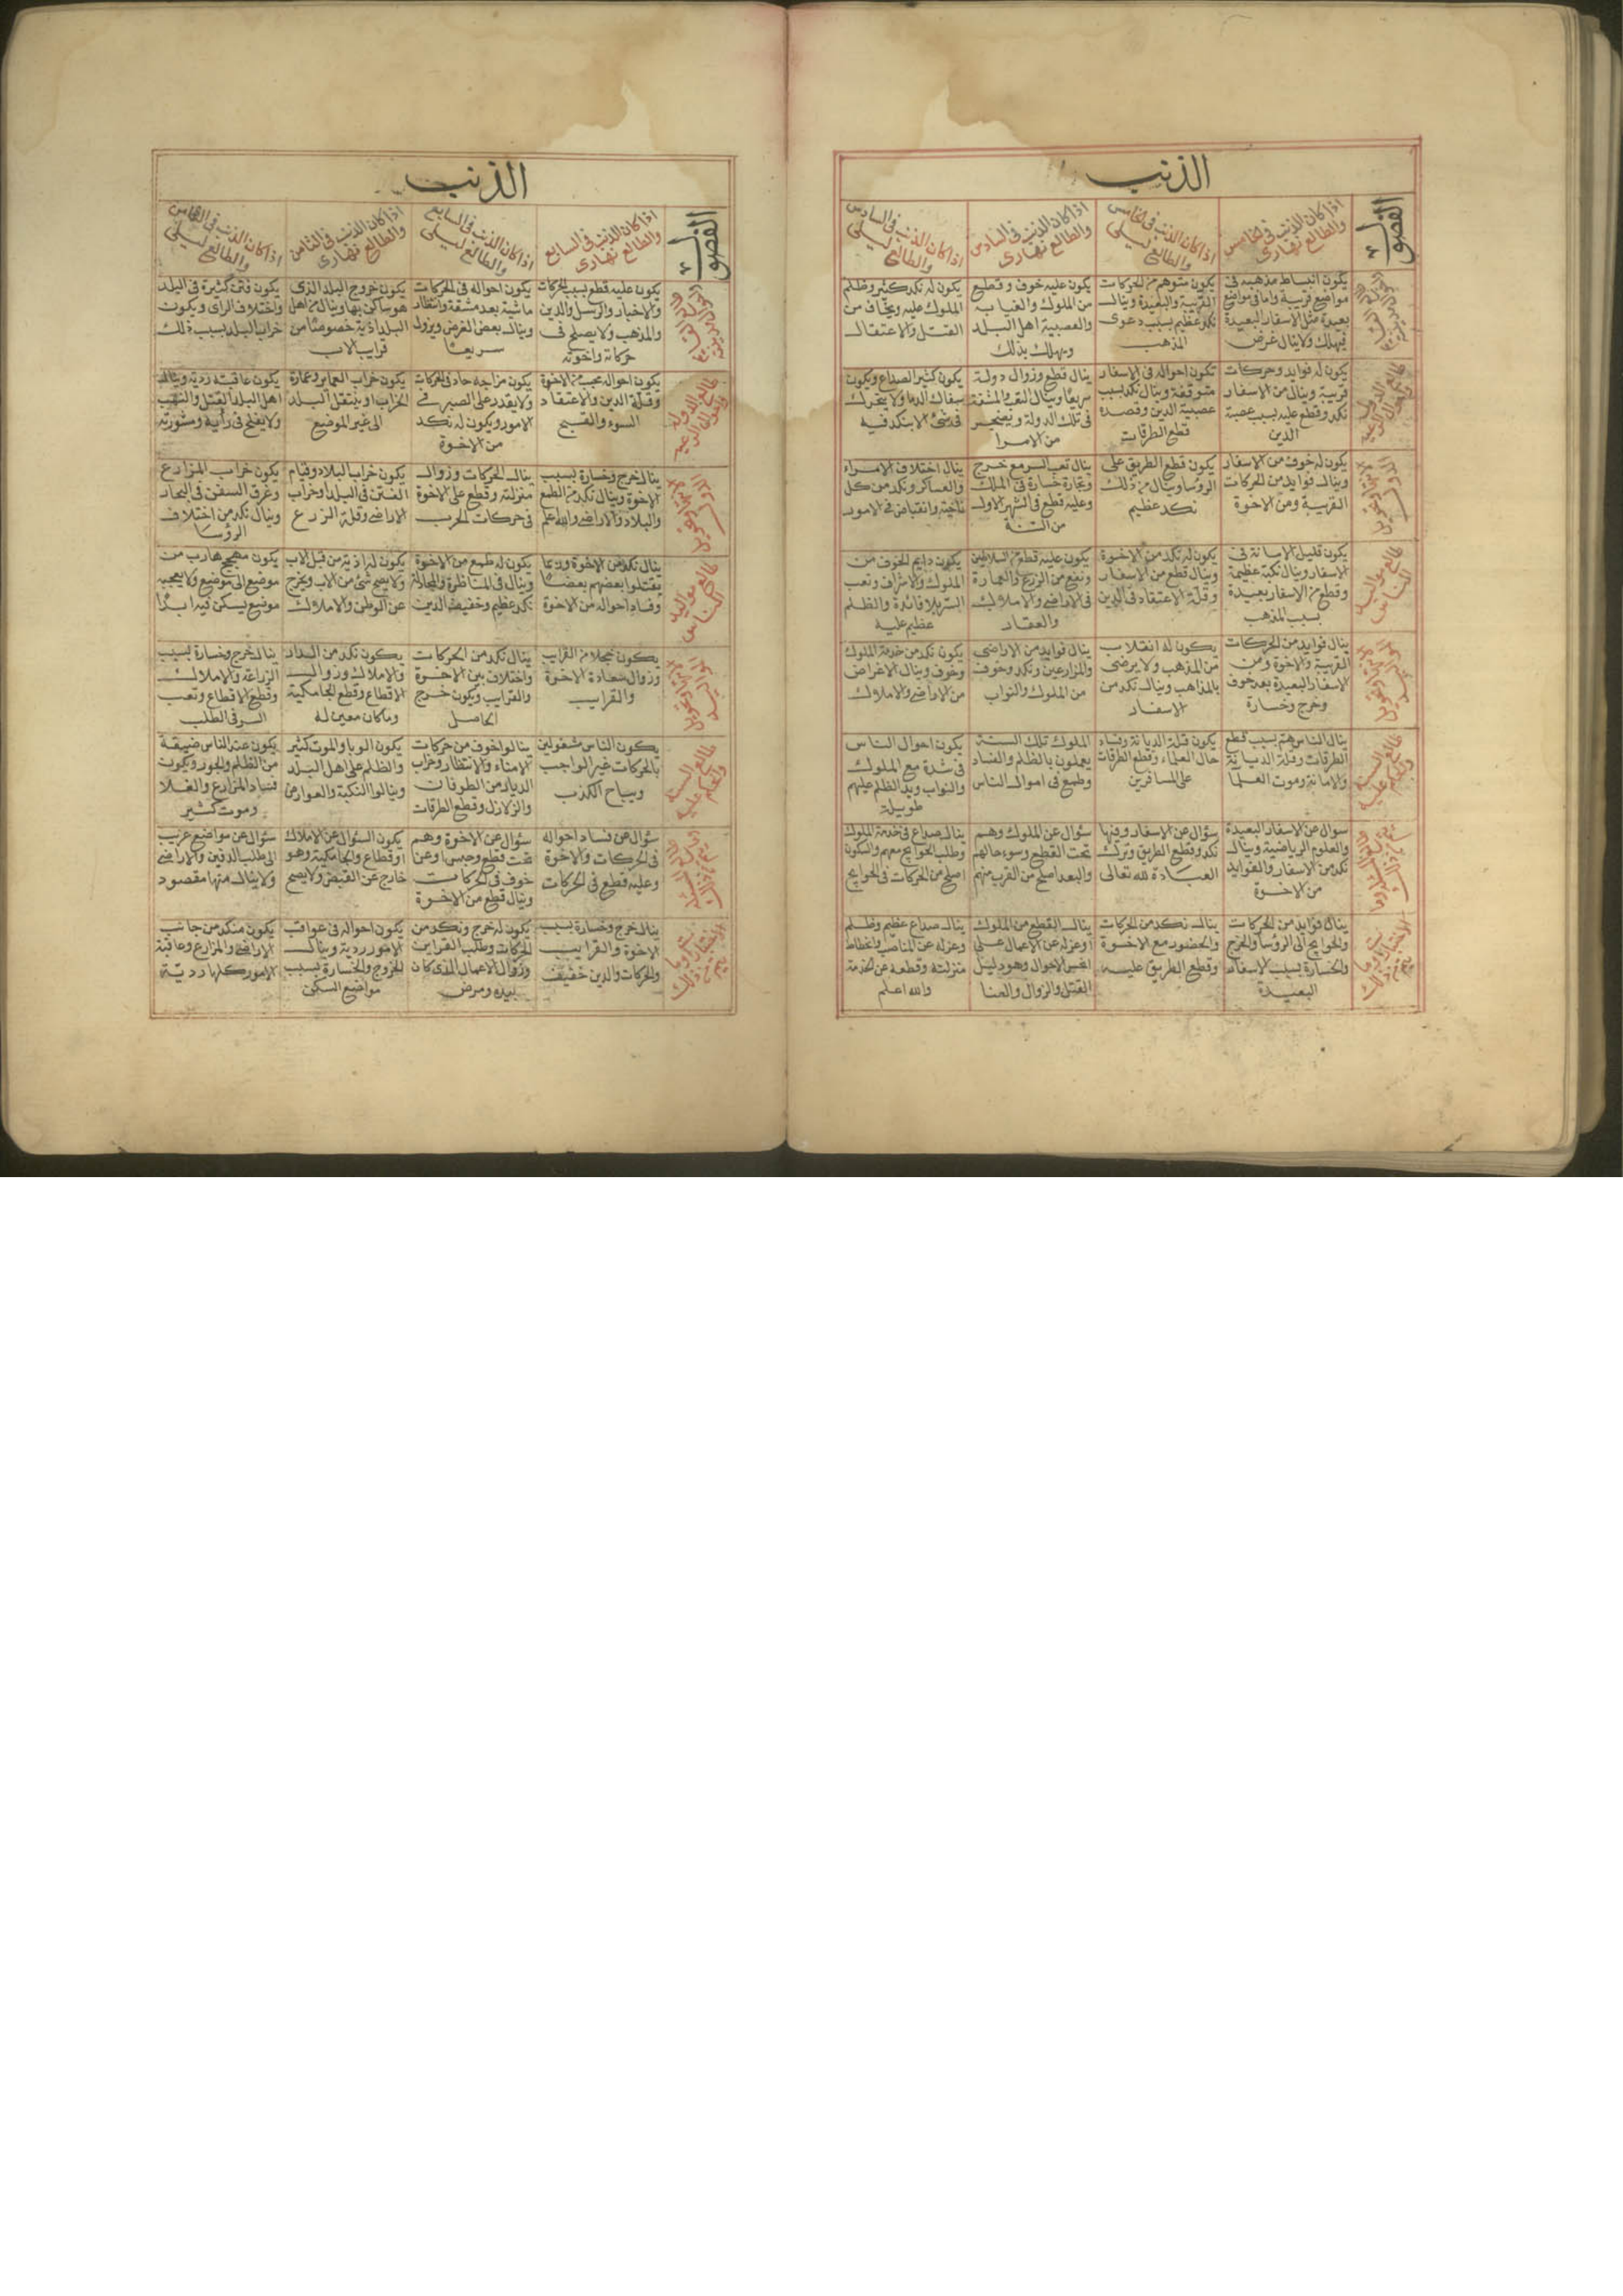 الذنب
الفصول
اذا كان الذنب فى الخامس
والطالع نهارى
اذا كان الذنب فى الخامس
والطالع ليلى
اذا كان الذنب فى السادس
والطالع نهارى
اذا كان الذنب فى السادس
والطالع ليلى
يكون انبساط مذهبه فى
مواضع قريبة واما فى مواضع
بعيدة مثل الاسفار البعيدة
فيهلك ولا ينال غرض
يكون متوهم من الحركات
القريبة والبعيدة وينال
نكد عظيم بسبب دعوى
المذهب
يكون عليه خوف وقطيع
من الملوك والغيابه
والعصبية اهل البلد
ويهلك بذلك
يكون له نكد كثير وظلم
الملوك عليه ويخاف من
القتل والاعتقال
يكون له فوايد وحركات
قريبة وينال من الاسفار
نكد وقطع عليه بسبب عصبة
الدين
تكون احواله فى الاسفار
متوقفة وينال نكد بسبب
عصبية الدين وقصده
قطع الطرقات
ينال قطع وزوال دولة
سريعا وينال التعب والمشقة
فى تلك الدولة
من الامرا
يكون كثير الصداع ويكون
سفاك الدما ولا يتحرك
فى شئ الا بنكد فيه
يكون له خوف من الاسفار
وينال فوايد من الحركات
القريبة ومن الاخوة
يكون قطع الطريق على
الروسا وينال من ذلك
نكد عظيم
ينال تعب السر مع خرج
وتجارة خسارة فى الملك
وعليه قطع فى الشهر الاول
من السنة
ينال اختلاف الامراء
والعساكر ونكد من كل
ناحية وانقباض فى الامور
يكون قليل الامانة فى
الاسفار وينال نكبة عظيمة
وقطع من الاسفار بعيدة
بسبب المذهب
يكون له نكد من الاخوة
وينال قطع من الاسفار
وقلة الاعتقاد فى الدين
يكون عليه قطع من السلاطين
ونفع من الزرع والعمارة
فى الاراضى والاملاك
والعقار
يكون دايم الخوف من
الملوك والاشراف وتعب
السر بلا فائدة والظلم
عظيم عليه
ينال فوايد من الحركات
القريبة والاخوة ومن
الاسفار البعيدة بعد خوف
وخرج وخسارة
يكون له انقلاب
من المذهب ولا يرضى
بالمذاهب وينال نكد من
الاسفار
ينال فوايد من الاراضى
والمزارعين ونكد وخوف
من الملوك والنواب
يكون نكد من خدمة الملوك
وخوف وينال الاغراض
من الاراضى والاملاك
ينال الناس هم بسبب قطع
الطرقات وقلة الديانة
والامانة وموت العلما
يكون قلة الديانة وفساد
حال العلماء وقطع الطرقات
على المسافرين
الملوك تلك السنة
يعملون بالظلم والفساد
وطمع فى اموال الناس
يكون احوال الناس
فى شدة مع الملوك
والنواب ويد الظلم عليهم
طويلة
سوال عن الاسفار البعيدة
والعلوم الرياضية وينال
نكد من الاسفار والفوايد
من الاخوة
سؤال عن الاسفار وفيها
نكد وقطع الطريق وترك
العبادة لله تعالى
سؤال عن الملوك وهم
تحت القطع وسوء حالهم
والبعد اصلح من القرب منهم
ينال صداع فى خدمة الملوك
وطلب الحوايج معهم والسكون
اصلح من الحركات فى الحوايج
ينال فوايد من الحركات
والحوايج الى الروسا والخرج
والخسارة بسبب الاسفار
البعيدة
ينال نكد من الحركات
والحضور مع الاخوة
وقطع الطريق عليه
ينال القطع من الملوك
او عزله عن الاعمال على
انحس الاحوال وهو دليل
القتل والزوال والعنا
ينال صداع عظيم وظلم
وعزله عن المناصب وانحطاط
منزلته وقطعه عن الخدمة
والله اعلم
الذنب
الفصول
اذا كان الذنب فى السابع
والطالع نهارى
اذا كان الذنب فى السابع
والطالع ليلى
اذا كان الذنب فى الثامن
والطالع نهارى
اذا كان الذنب فى الثامن
والطالع ليلى
يكون عليه قطع بسبب الحركات
والاخبار والرسل والدين
والمذهب ولا يصلح فى
حركاته واخوته
يكون احواله فى الحركات
ماشية بعد مشقة وانتظار
وينال بعض الغرض ويزول
سريعا
يكون خروج البلد الذى
هو ساكن بها وينال من اهل
البلد اذية خصوصا من
قرايب الاب
يكون فتن كثيرة فى البلد
واختلاف الراى ويكون
خراب البلد بسبب ذلك
يكون احواله عجب من الاخوة
وقلة الدين والاعتقاد
السوء والقبيح
يكون مزاجه حاد فى الحركات
ولا يقدر على الصبر فى
الامور ويكون له نكد
من الاخوة
يكون خراب العماير وعمارة
الخراب او ينتقل البلد
الى غير الموضع
يكون عاقبته ردية وينال
اهل البلد القتل والنهب
ولا يفلح فى رأيه ومشورته
ينال خرج وخسارة بسبب
الاخوة وينال نكد من الطمع
والبلاد والاراضى والله اعلم
ينال الحركات وزوال
منزلته وقطع على الاخوة
فى حركات الحرب
يكون خراب البلاد وقيام
الفتن فى البلد وخراب
الاراضى وقلة الزرع
يكون خراب المزارع
وغرق السفن فى البحار
وينال نكد من اختلاف
الروسا
ينال نكد من الاخوة وربما
يقتلوا بعضهم بعضا
وفساد احواله من الاخوة
يكون له طمع من الاخوة
وينال فى المناظرة والمجادلة
نكد عظيم وخفيف الدين
يكون له اذية من قبل الاب
ولا يصح شئ من الاب ويخرج
عن الوطن والاملاك
يكون مهجج هارب من
موضع الى موضع ولا يعجبه
موضع يسكن فيه ابدا
يكون من القرايب
وزوال سعادة الاخوة
والقرايب
ينال نكد من الحركات
واختلاف بين الاخوة
والقرايب ويكون خرج
الحاصل
يكون نكد من السداد
والاملاك وزوال
الاقطاع وقطع الجامكية
ومكان معين له
ينال خرج وخسارة بسبب
الزراعة والاملاك
وقطع الاقطاع وتعب
السر فى الطلب
يكون الناس مشغولين
بالحركات غير الواجب
ويباح الكذب
ينالوا خوف من حركات
الامناء والانتظار وخراب
الديار من الطوفان
والزلازل وقطع الطرقات
يكون الوبا والموت كثير
والظلم على اهل البلد
وينالوا النكبة والعوارض
يكون عند الناس ضيقة
من الظلم والجور ويكون
فساد المزارع والغلا
وموت كثير
سؤال عن فساد احواله
فى الحركات والاخوة
وعليه قطع فى الحركات
سؤال عن الاخوة وهم
تحت قطع وحبس او عن
خوف فى الحركات
وينال قطع من الاخوة
يكون السؤال عن الاملاك
او قطاع والجامكية وهو
خارج عن القبض ولا يصح
سؤال عن مواضع غريب
الى طلب الدفين والاراضى
ولا ينال منها مقصود
ينال خرج وخسارة بسبب
الاخوة والقرايب
والحركات والدين خفيف
يكون له خرج ونكد من
الحركات وطلب القرايب
وزوال الاعمال الذى كان
بيده ومرض
يكون احواله فى عواقب
الامور ردية وينال
الخروج والخسارة بسبب
مواضع السكن
يكون متنكد من جانب
الاراضى والمزارع وعاقبة
الامور كلها رديّة